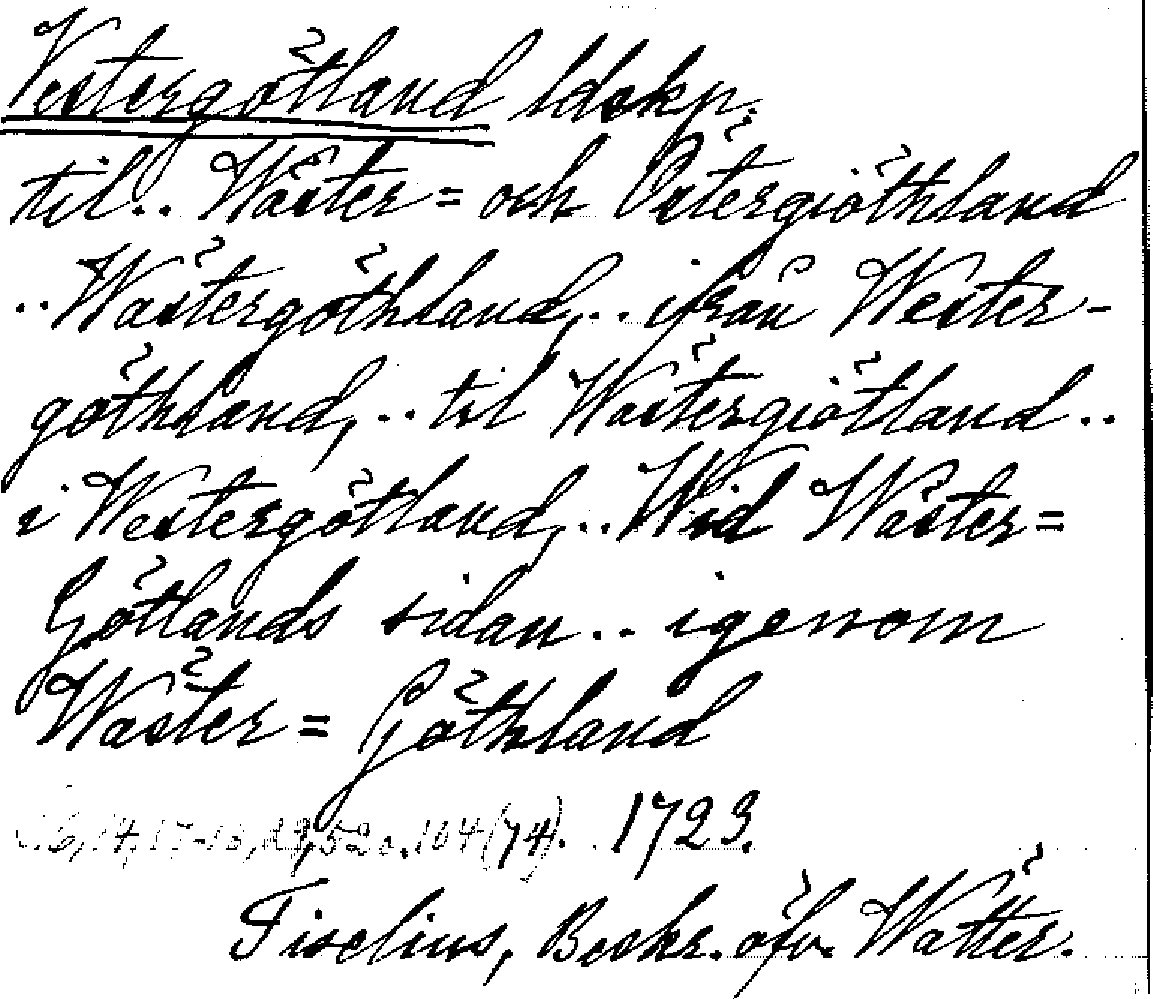 Vestergötland ldskp.
til.. Wäster= och Östergiöthland
.. Wästergöthland,.. ifrån Wester-
göthland,.. til Wästergiötland..
i Westergötland,.. Wid Wäster=
Götlands sidan.. igenom
Wäster= Göthland
6, 14, 17-18, 29, 52 o. 104 (74). 1723.
Fiselius, Beskr. öfv. Wätter.